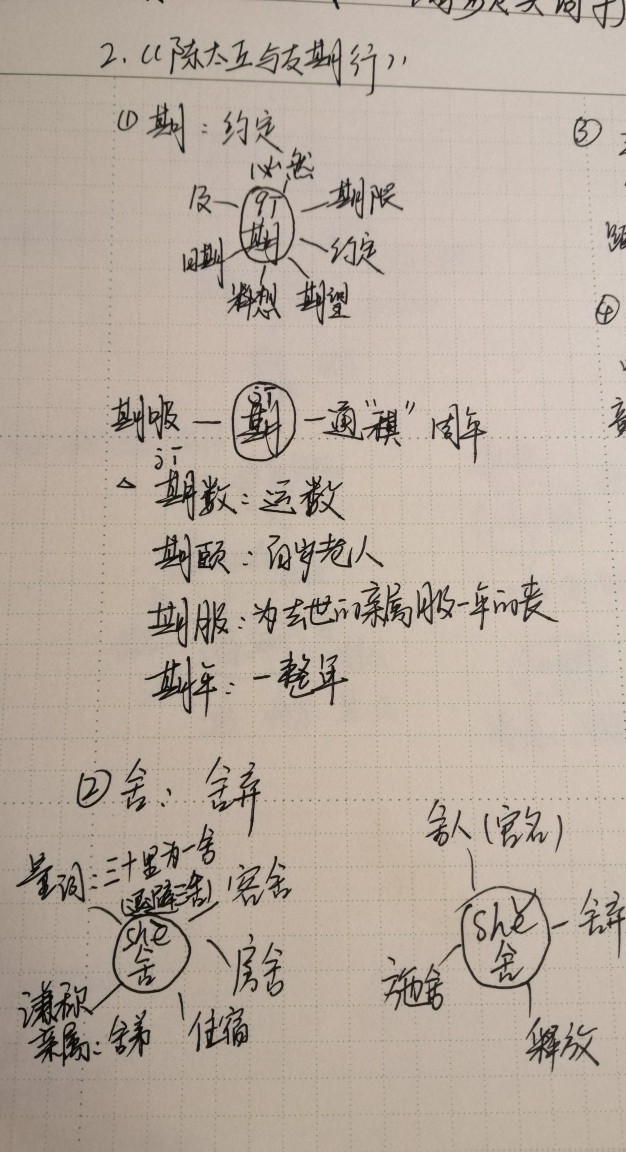 2.《陈太丘与友期行》
① 期：约定
必然
及
qī
期
期限
日期
约定
料想
期望
期服 — 期 — 通“稘” 周年
jī
jī
△ 期数：运数
期颐：百岁老人
期服：为去世的亲属服一年的丧
期年：一整年
② 舍：舍弃
量词：三十里为一舍
(退避三舍)
客舍
shè
舍
房舍
谦称
亲属：舍弟
住宿
舍人(官名)
shě
舍
舍弃
施舍
释放
③
④